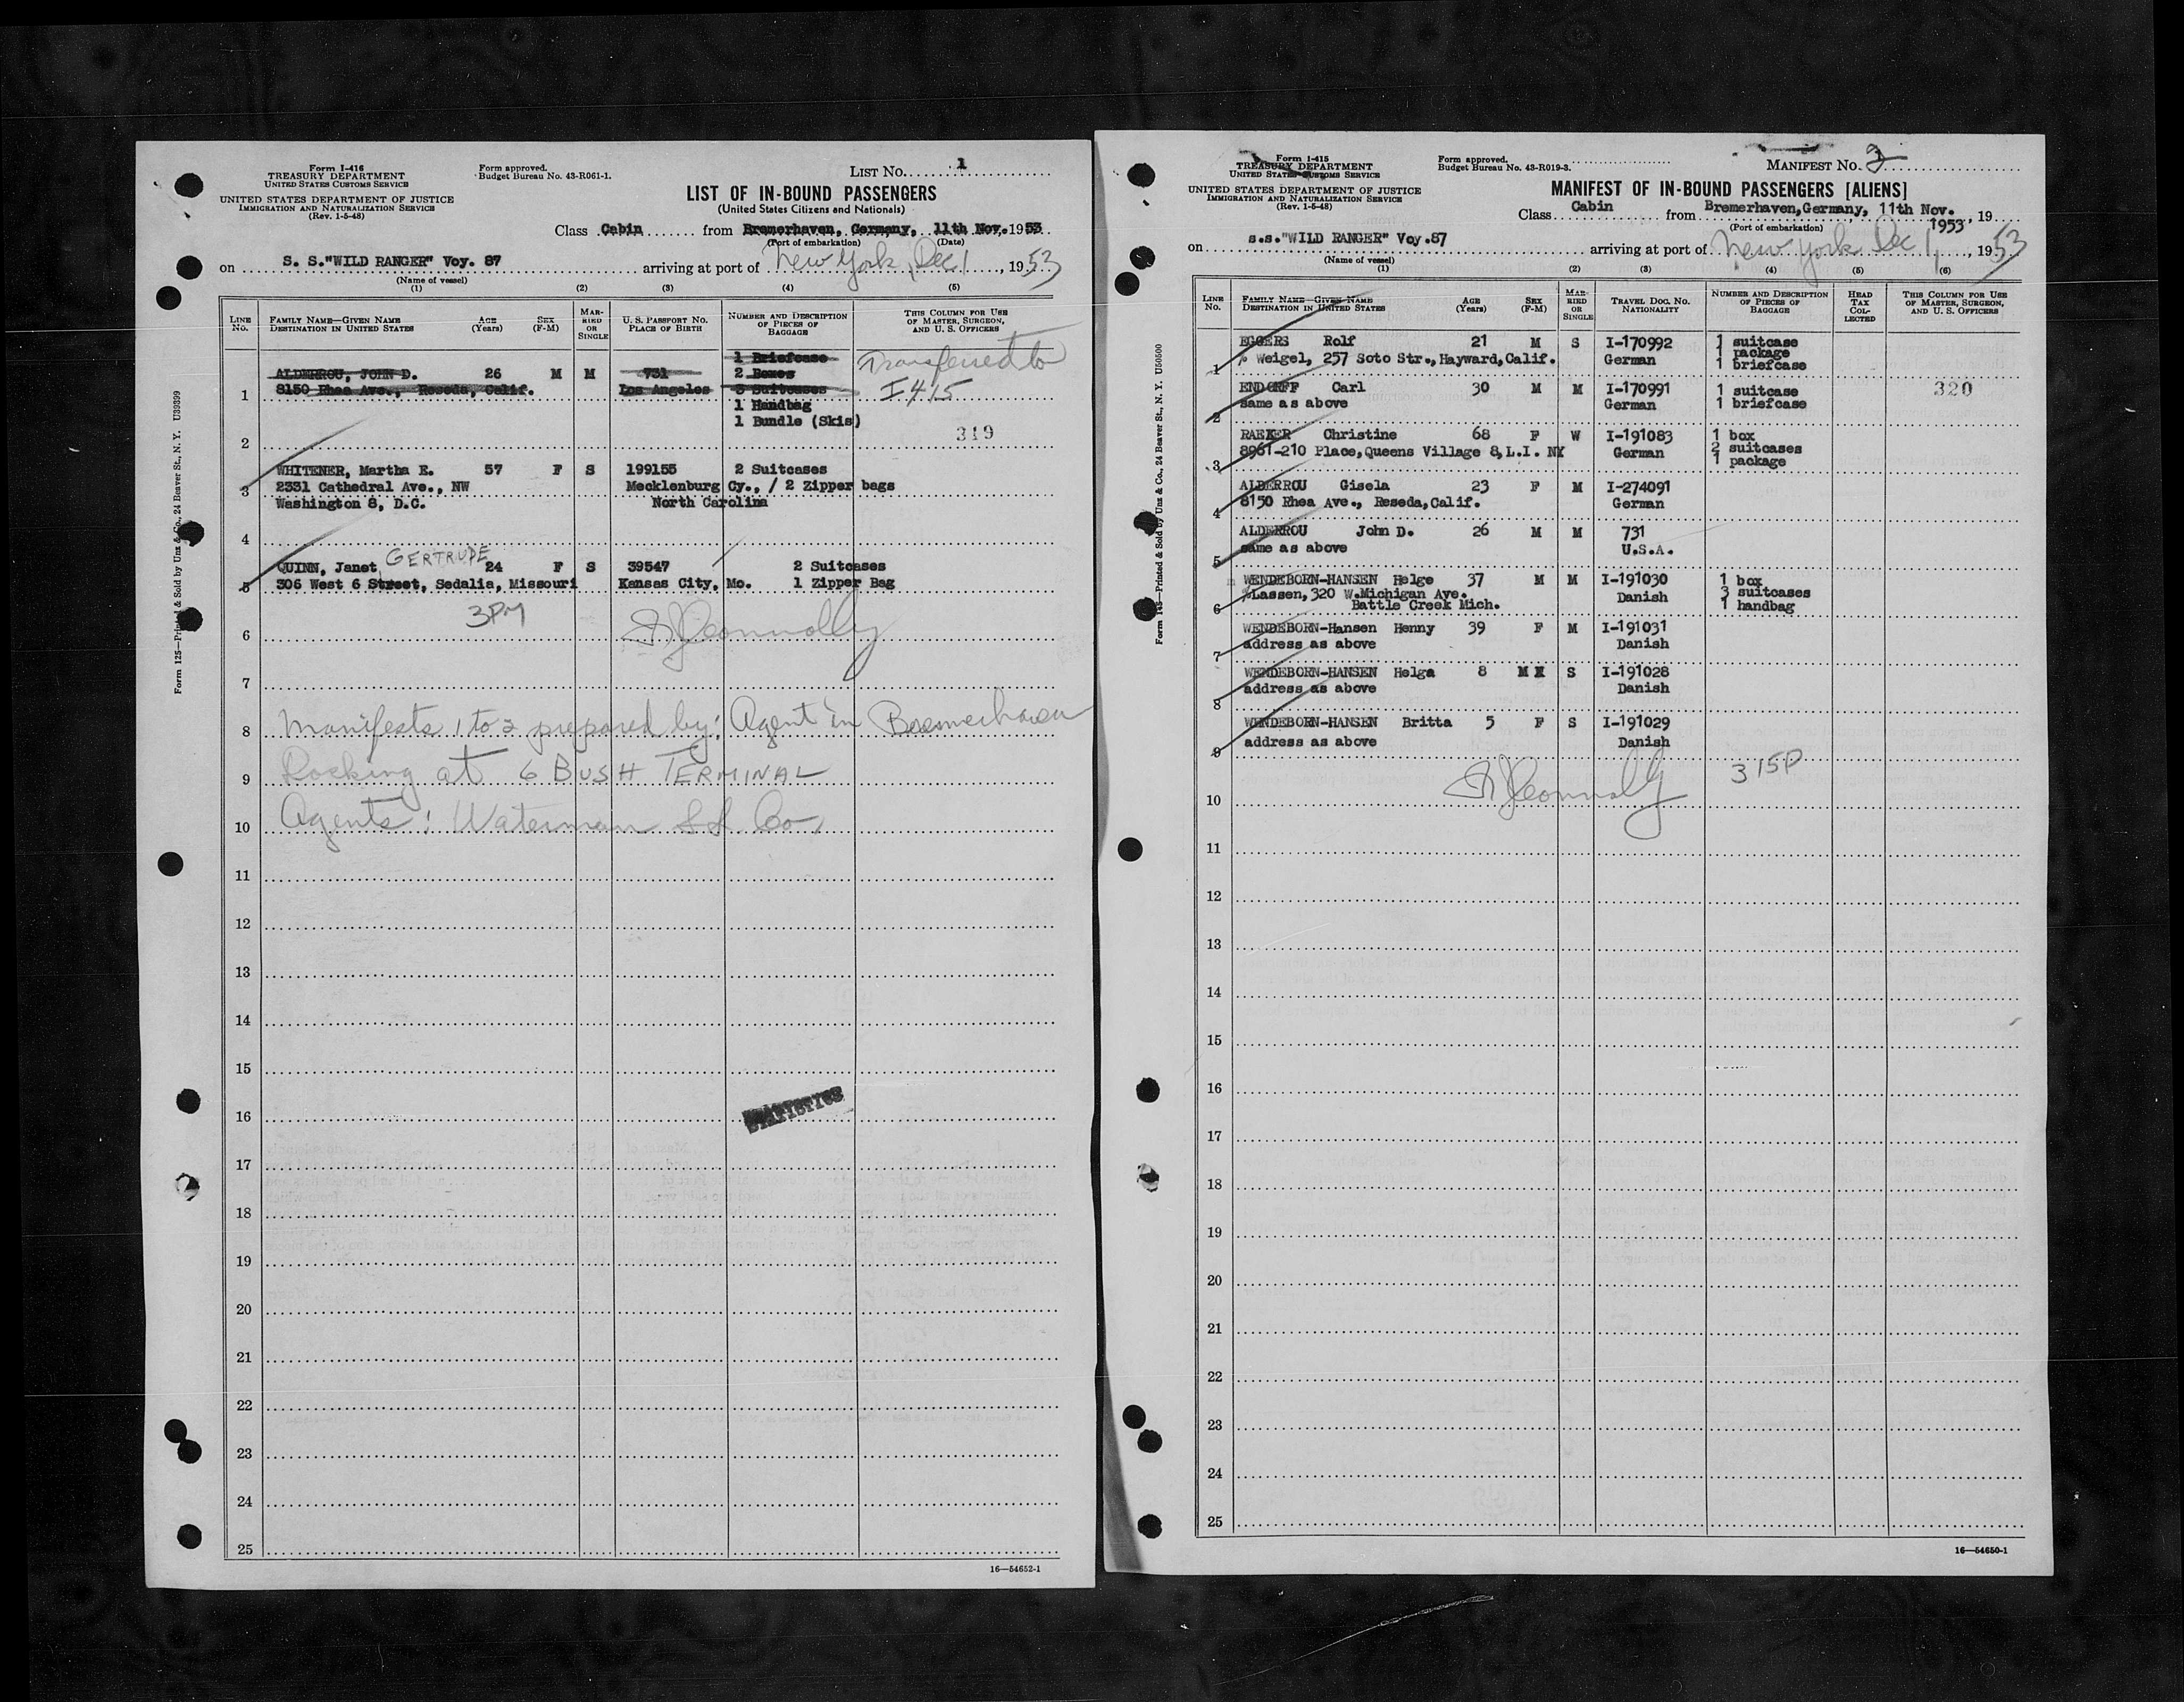 Form I-416
TREASURY DEPARTMENT
UNITED STATES CUSTOMS SERVICE
UNITED STATES DEPARTMENT OF JUSTICE
IMMIGRATION AND NATURALIZATION SERVICE
(Rev. 1-5-48)
Form approved.
Budget Bureau No. 43-R061-1.
LIST NO. 1
LIST OF IN-BOUND PASSENGERS
(United States Citizens and Nationals)
Class Cabin from Bremerhaven, Germany, 11th Nov. 1953
(Port of embarkation) (Date)
on S. S."WILD RANGER" Voy. 87 arriving at port of New York, Dec 1, 1953
(Name of vessel)
(1) (2) (3) (4) (5)
LINE No. FAMILY NAME—GIVEN NAME DESTINATION IN UNITED STATES AGE (Years) SEX (F-M) MARRIED OR SINGLE U. S. PASSPORT NO. PLACE OF BIRTH NUMBER AND DESCRIPTION OF PIECES OF BAGGAGE THIS COLUMN FOR USE OF MASTER, SURGEON, AND U. S. OFFICERS
1 Briefcase Transferred to
ALDERROU, JOHN D. 26 M M 731 2 Boxes
1 8150 Rhea Ave., Reseda, Calif. Los Angeles 3 Suitcases I 415
1 Handbag
1 Bundle (Skis)
2 319
WHITENER, Martha E. 57 F S 199155 2 Suitcases
3 2331 Cathedral Ave., NW Mecklenburg Cy., / 2 Zipper bags
Washington 8, D.C. North Carolina
4
GERTRUDE
QUINN, Janet 24 F S 39547 2 Suitcases
5 306 West 6 Street, Sedalia, Missouri Kansas City, Mo. 1 Zipper Bag
3PM
6 Connolly
7
8 Manifests 1 to 2 prepared by: Agent in Bremerhaven
9 Docking at 6 BUSH TERMINAL
10 Agents: Waterman SS. Co.
11
12
13
14
15
16 STATISTICS
17
18
19
20
21
22
23
24
25
16—54652-1
Form 125—Printed & Sold by Unz & Co., 24 Beaver St., N. Y. U39399
Form I-415
TREASURY DEPARTMENT
UNITED STATES CUSTOMS SERVICE
UNITED STATES DEPARTMENT OF JUSTICE
IMMIGRATION AND NATURALIZATION SERVICE
(Rev. 1-5-48)
Form approved.
Budget Bureau No. 43-R019-3.
MANIFEST NO. 2
MANIFEST OF IN-BOUND PASSENGERS [ALIENS]
Class Cabin from Bremerhaven, Germany, 11th Nov. 1953, 19
(Port of embarkation)
on s.s."WILD RANGER" Voy.87 arriving at port of New York Dec 1, 1953
(Name of vessel)
(1) (2) (3) (4) (5) (6)
LINE No. FAMILY NAME—GIVEN NAME DESTINATION IN UNITED STATES AGE (Years) SEX (F-M) MARRIED OR SINGLE TRAVEL DOC. NO. NATIONALITY NUMBER AND DESCRIPTION OF PIECES OF BAGGAGE HEAD TAX COLLECTED THIS COLUMN FOR USE OF MASTER, SURGEON, AND U. S. OFFICERS
EGGERS Rolf 21 M S I-170992 1 suitcase
1 package
1 % Weigel, 257 Soto Str., Hayward, Calif. German 1 briefcase
ENDORFF Carl 30 M M I-170991 1 suitcase 320
2 same as above German 1 briefcase
RAEKER Christine 68 F W I-191083 1 box
3 8961-210 Place, Queens Village 8, L.I. NY German 2 suitcases
1 package
ALDERROU Gisela 23 F M I-274091
4 8150 Rhea Ave., Reseda, Calif. German
ALDERROU John D. 26 M M 731
5 same as above U.S.A.
WENDEBORN-HANSEN Helge 37 M M I-191030 1 box
6 %Lassen, 320 W.Michigan Ave. Danish 3 suitcases
Battle Creek Mich. 1 handbag
WENDEBORN-Hansen Henny 39 F M I-191031
7 address as above Danish
WENDEBORN-HANSEN Helga 8 M S I-191028
8 address as above Danish
WENDEBORN-HANSEN Britta 5 F S I-191029
9 address as above Danish
Connolly 315P
10
11
12
13
14
15
16
17
18
19
20
21
22
23
24
25
16—54650-1
Form 145—Printed & Sold by Unz & Co., 24 Beaver St., N. Y. U50500